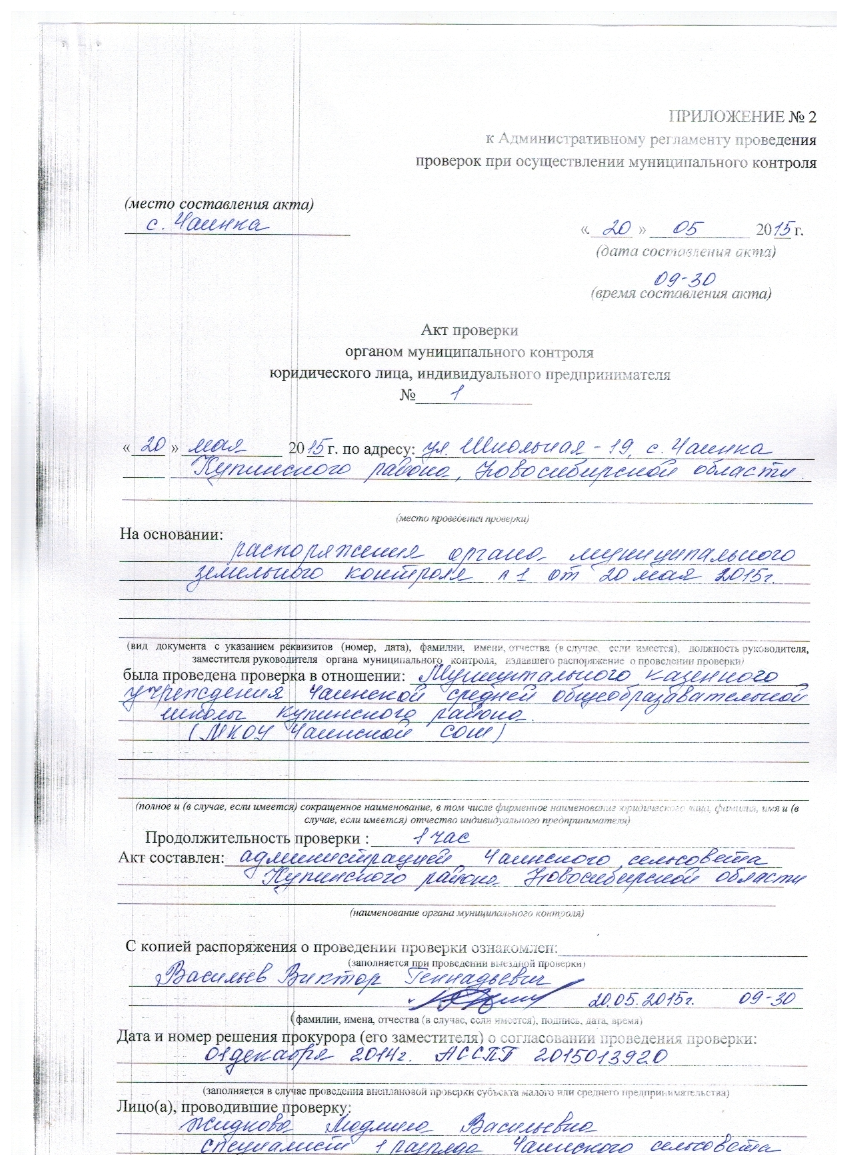 ПРИЛОЖЕНИЕ № 2
к Административному регламенту проведения
проверок при осуществлении муниципального контроля
(место составления акта)
с. Чаинка
« 20 » 05 2015 г.
(дата составления акта)
09-30
(время составления акта)
Акт проверки
органом муниципального контроля
юридического лица, индивидуального предпринимателя
№ 1
« 20 » мая 2015 г. по адресу: ул. Школьная - 19, с. Чаинка
Купинского района, Новосибирской области.
(место проведения проверки)
На основании:
распоряжения органа муниципального
земельного контроля №1 от 20 мая 2015г.
(вид документа с указанием реквизитов (номер, дата), фамилии, имени, отчества (в случае, если имеется), должность руководителя,
заместителя руководителя органа муниципального контроля, издавшего распоряжение о проведении проверки)
была проведена проверка в отношении: Муниципального казенного
учреждения Чаинской средней общеобразавательной
школы Купинского района.
(МКОУ Чаинской СОШ)
(полное и (в случае, если имеется) сокращенное наименование, в том числе фирменное наименование юридического лица, фамилия, имя и (в
случае, если имеется) отчество индивидуального предпринимателя)
Продолжительность проверки : 1 час
Акт составлен: администрацией Чаинского сельсовета
Купинского района Новосибирской области
(наименование органа муниципального контроля)
С копией распоряжения о проведении проверки ознакомлен:
(заполняется при проведении выездной проверки)
Васильев Виктор Геннадьевич
20.05.2015г. 09-30
(фамилии, имена, отчества (в случае, если имеется), подпись, дата, время)
Дата и номер решения прокурора (его заместителя) о согласовании проведения проверки:
01 декабря 2014г. АССПП 2015013920
(заполняется в случае проведения внеплановой проверки субъекта малого или среднего предпринимательства)
Лицо(а), проводившие проверку:
Жидкова Людмила Васильевна
специалист 1 разряда Чаинского сельсовета